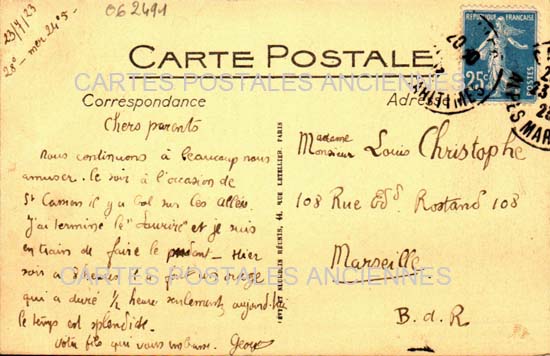 062491
23/7/23
28° - mer 24°5 -
CARTE POSTALE
CARTES POSTALES ANCIENNES
Correspondance
Adresse
REPUBLIQUE FRANÇAISE
25c
POSTES
ALPES MAR
MARITIMES
Chers parents
Nous continuons à beaucoup nous
amuser. le soir à l'occasion de
St il y a bal sur les allées.
J'ai terminé le " " et je suis
en train de faire le pendant - Hier
soir à il a fait un orage
qui a duré ½ heure seulement, aujourd'hui
le temps est splendide.
votre fils qui vous embrasse. Georges
RÉUNIS, 44, RUE LETELLIER, PARIS
Madame
Monsieur Louis Christophe
108 Rue Edd Rostand 108
Marseille
B. d. R
CARTES POSTALES ANCIENNES